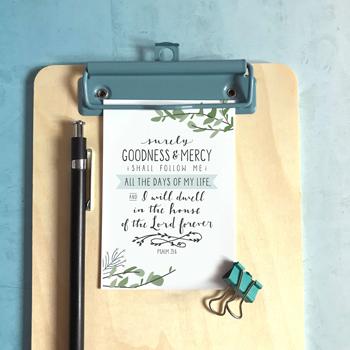 surely
GOODNESS & MERCY
SHALL FOLLOW ME
ALL THE DAYS OF MY LIFE,
AND I will dwell
in the house
of the Lord forever
PSALM 23:6